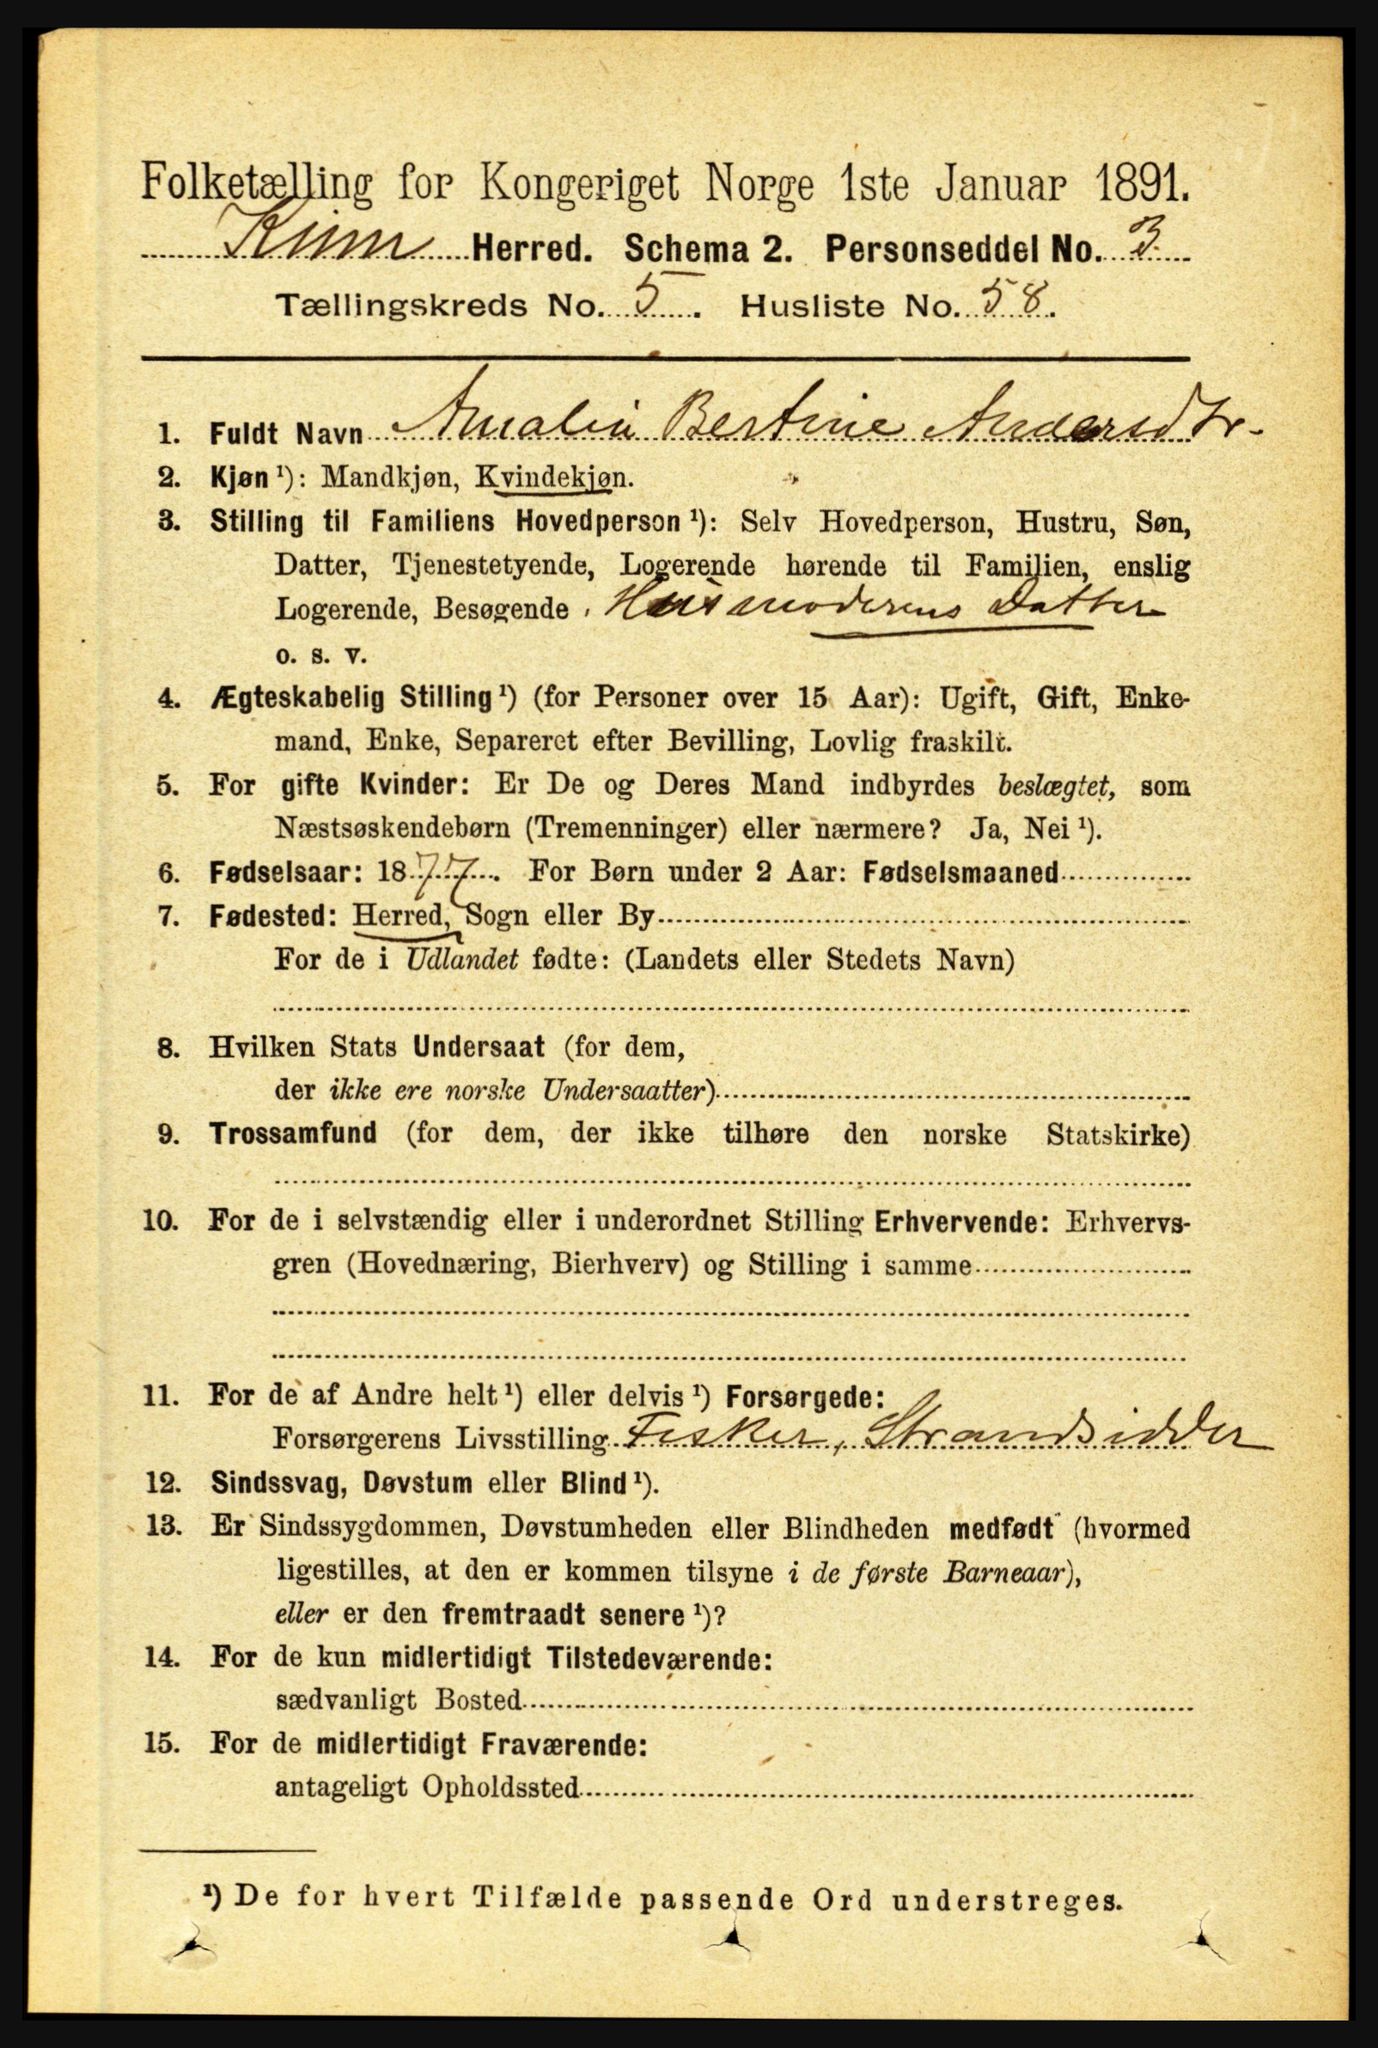 Folketælling for Kongeriget Norge 1ste Januar 1891.
Kinn Herred. Schema 2. Personseddel No. 3
Tællingskreds No. 5. Husliste No. 58.
1. Fuldt Navn Amalia Bertine Andersdtr.
2. Kjøn¹): Mandkjøn, Kvindekjøn.
3. Stilling til Familiens Hovedperson¹): Selv Hovedperson, Hustru, Søn,
Datter, Tjenestetyende, Logerende hørende til Familien, enslig
Logerende, Besøgende. Husmoderens Datter
o. s. v.
4. Ægteskabelig Stilling¹) (for Personer over 15 Aar): Ugift, Gift, Enke-
mand, Enke, Separeret efter Bevilling, Lovlig fraskilt.
5. For gifte Kvinder: Er De og Deres Mand indbyrdes beslægtet, som
Næstsøskendebørn (Tremenninger) eller nærmere? Ja, Nei¹).
6. Fødselsaar: 1877. For Børn under 2 Aar: Fødselsmaaned
7. Fødested: Herred, Sogn eller By
For de i Udlandet fødte: (Landets eller Stedets Navn)
8. Hvilken Stats Undersaat (for dem,
der ikke ere norske Undersaatter)
9. Trossamfund (for dem, der ikke tilhøre den norske Statskirke)
10. For de i selvstændig eller i underordnet Stilling Erhvervende: Erhvervs-
gren (Hovednæring, Bierhverv) og Stilling i samme
11. For de af Andre helt¹) eller delvis¹) Forsørgede:
Forsørgerens Livsstilling Fisker, Strandsidder
12. Sindssvag, Døvstum eller Blind¹).
13. Er Sindssygdommen, Døvstumheden eller Blindheden medfødt (hvormed
ligestilles, at den er kommen tilsyne i de første Barneaar),
eller er den fremtraadt senere¹)?
14. For de kun midlertidigt Tilstedeværende:
sædvanligt Bosted
15. For de midlertidigt Fraværende:
antageligt Opholdssted
¹) De for hvert Tilfælde passende Ord understreges.